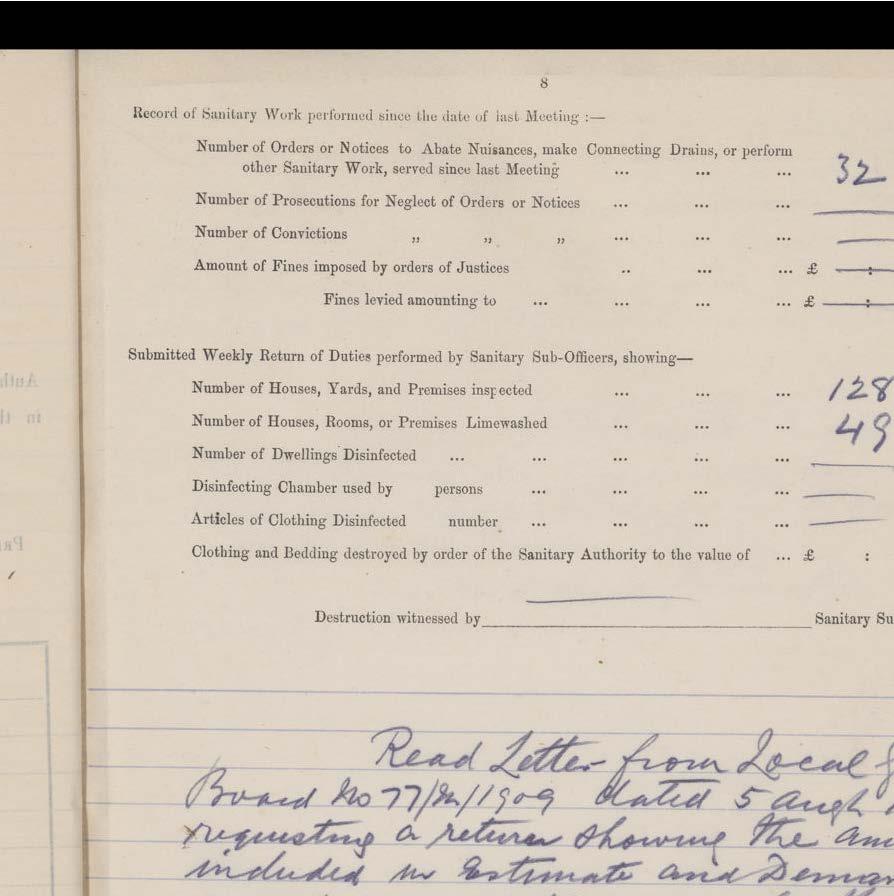 8
Record of Sanitary Work performed since the date of last Meeting :—
Number of Orders or Notices to Abate Nuisances, make Connecting Drains, or perform
other Sanitary Work, served since last Meeting ... ... ... 32
Number of Prosecutions for Neglect of Orders or Notices ... ... ... —
Number of Convictions „ „ „ ... ... ... —
Amount of Fines imposed by orders of Justices .. ... ... £ — :
Fines levied amounting to ... ... ... ... £ — :
Submitted Weekly Return of Duties performed by Sanitary Sub-Officers, showing—
Number of Houses, Yards, and Premises inspected ... ... ... 128
Number of Houses, Rooms, or Premises Limewashed ... ... ... 49
Number of Dwellings Disinfected ... ... ... ... ... —
Disinfecting Chamber used by persons ... ... ... ... —
Articles of Clothing Disinfected number ... ... ... ... —
Clothing and Bedding destroyed by order of the Sanitary Authority to the value of ... £ :
Destruction witnessed by Sanitary Su
Read Letter from Local
Board No 77/ /1909 dated 5 Augt
requesting a return showing the am
included in Estimate and Deman